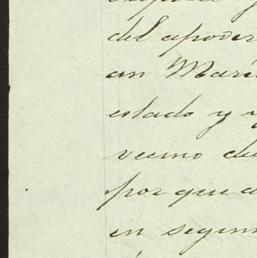 del apoder
an Marí
estado y v
vecino de
por que a
en segun